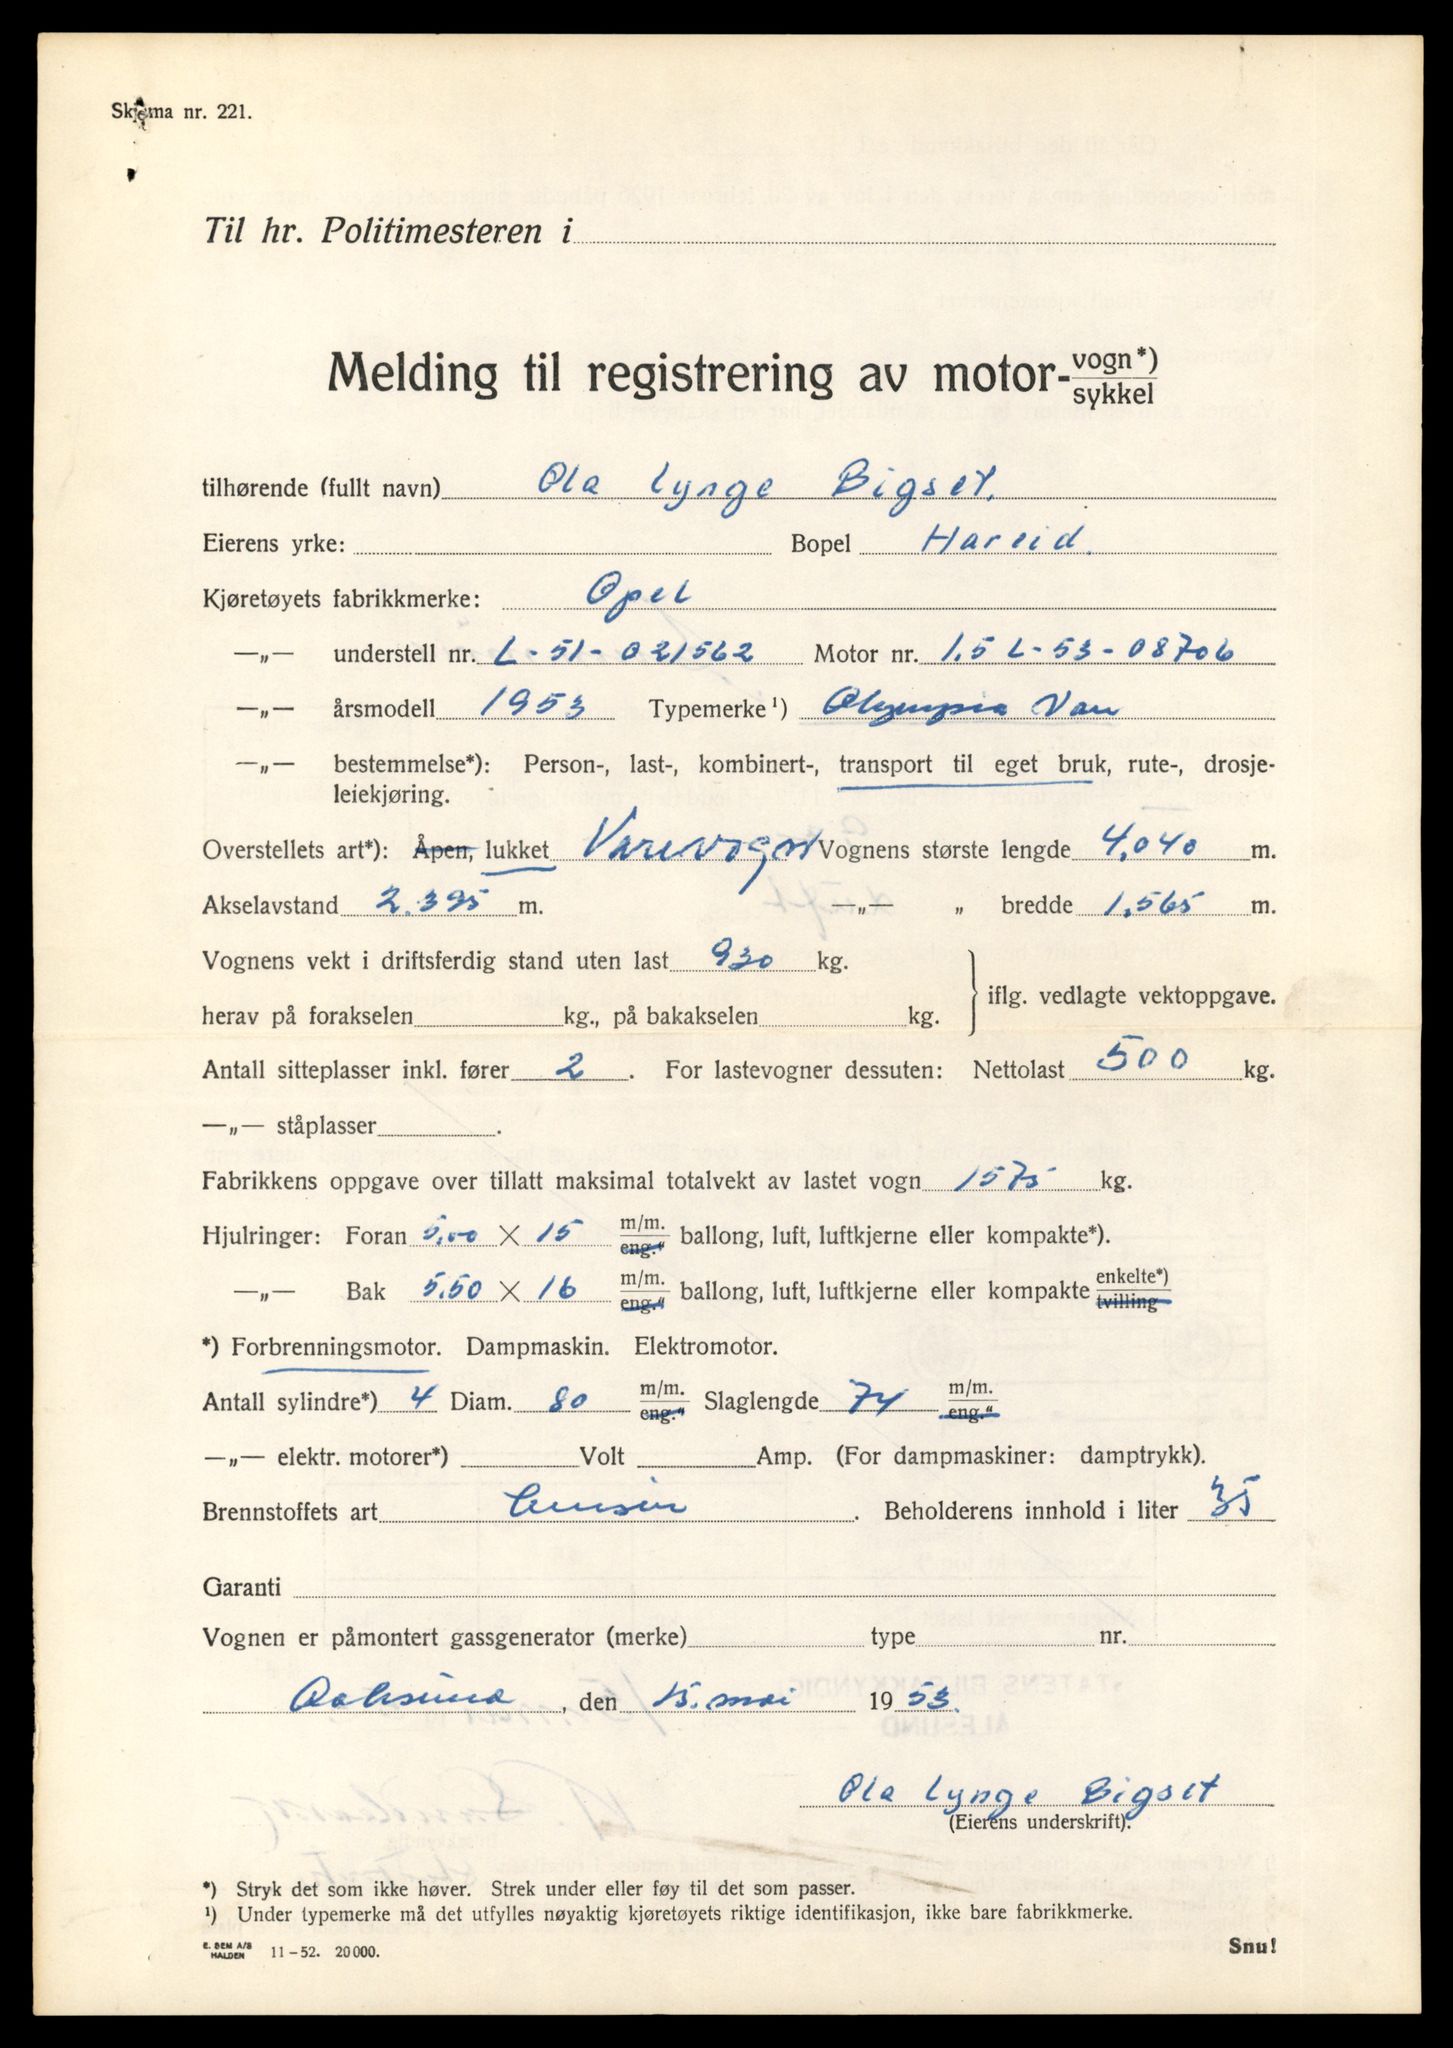 Skjema nr. 221.
Til hr. Politimesteren i
Melding til registrering av motor-vogn*)
sykkel
tilhørende (fullt navn) Ola Lynge Bigset.
Eierens yrke: Bopel Hareid.
Kjøretøyets fabrikkmerke: Opel
—„— understell nr. L-51-021562 Motor nr. 1,5 L-53-08706
—„— årsmodell 1953 Typemerke¹) Olympia Van
—„— bestemmelse*): Person-, last-, kombinert-, transport til eget bruk, rute-, drosje-
leiekjøring.
Overstellets art*): Åpen, lukket Varevogn Vognens største lengde 4,040 m.
Akselavstand 2.395 m. —„— „ bredde 1,565 m.
Vognens vekt i driftsferdig stand uten last 930 kg.
iflg. vedlagte vektoppgave.
herav på forakselen kg., på bakakselen kg.
Antall sitteplasser inkl. fører 2. For lastevogner dessuten: Nettolast 500 kg.
—„— ståplasser .
Fabrikkens oppgave over tillatt maksimal totalvekt av lastet vogn 1575 kg.
Hjulringer: Foran 5,00 × 15 m/m. eng.“ ballong, luft, luftkjerne eller kompakte*).
—„— Bak 5.50 × 16 m/m. eng.“ ballong, luft, luftkjerne eller kompakte enkelte*) tvilling
*) Forbrenningsmotor. Dampmaskin. Elektromotor.
Antall sylindre*) 4 Diam. 80 m/m. eng.“ Slaglengde 74 m/m. eng.“
—„— elektr. motorer*) Volt Amp. (For dampmaskiner: damptrykk).
Brennstoffets art . Beholderens innhold i liter 35
Garanti
Vognen er påmontert gassgenerator (merke) type nr.
Aalesund, den 15. mai 1953.
Ola Lynge Bigset
(Eierens underskrift).
*) Stryk det som ikke høver. Strek under eller føy til det som passer.
¹) Under typemerke må det utfylles nøyaktig kjøretøyets riktige identifikasjon, ikke bare fabrikkmerke.
E. SEM A/S
HALDEN 11-52. 20000.
Snu!